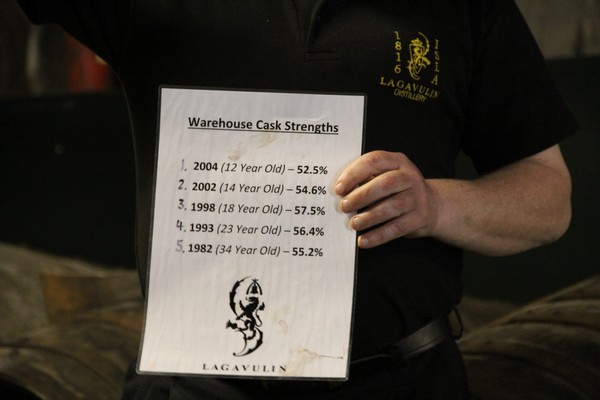 1816 ISLA
LAGAVULIN
DISTILLERY
Warehouse Cask Strengths
1. 2004 (12 Year Old) – 52.5%
2. 2002 (14 Year Old) – 54.6%
3. 1998 (18 Year Old) – 57.5%
4. 1993 (23 Year Old) – 56.4%
5. 1982 (34 Year Old) – 55.2%
LAGAVULIN